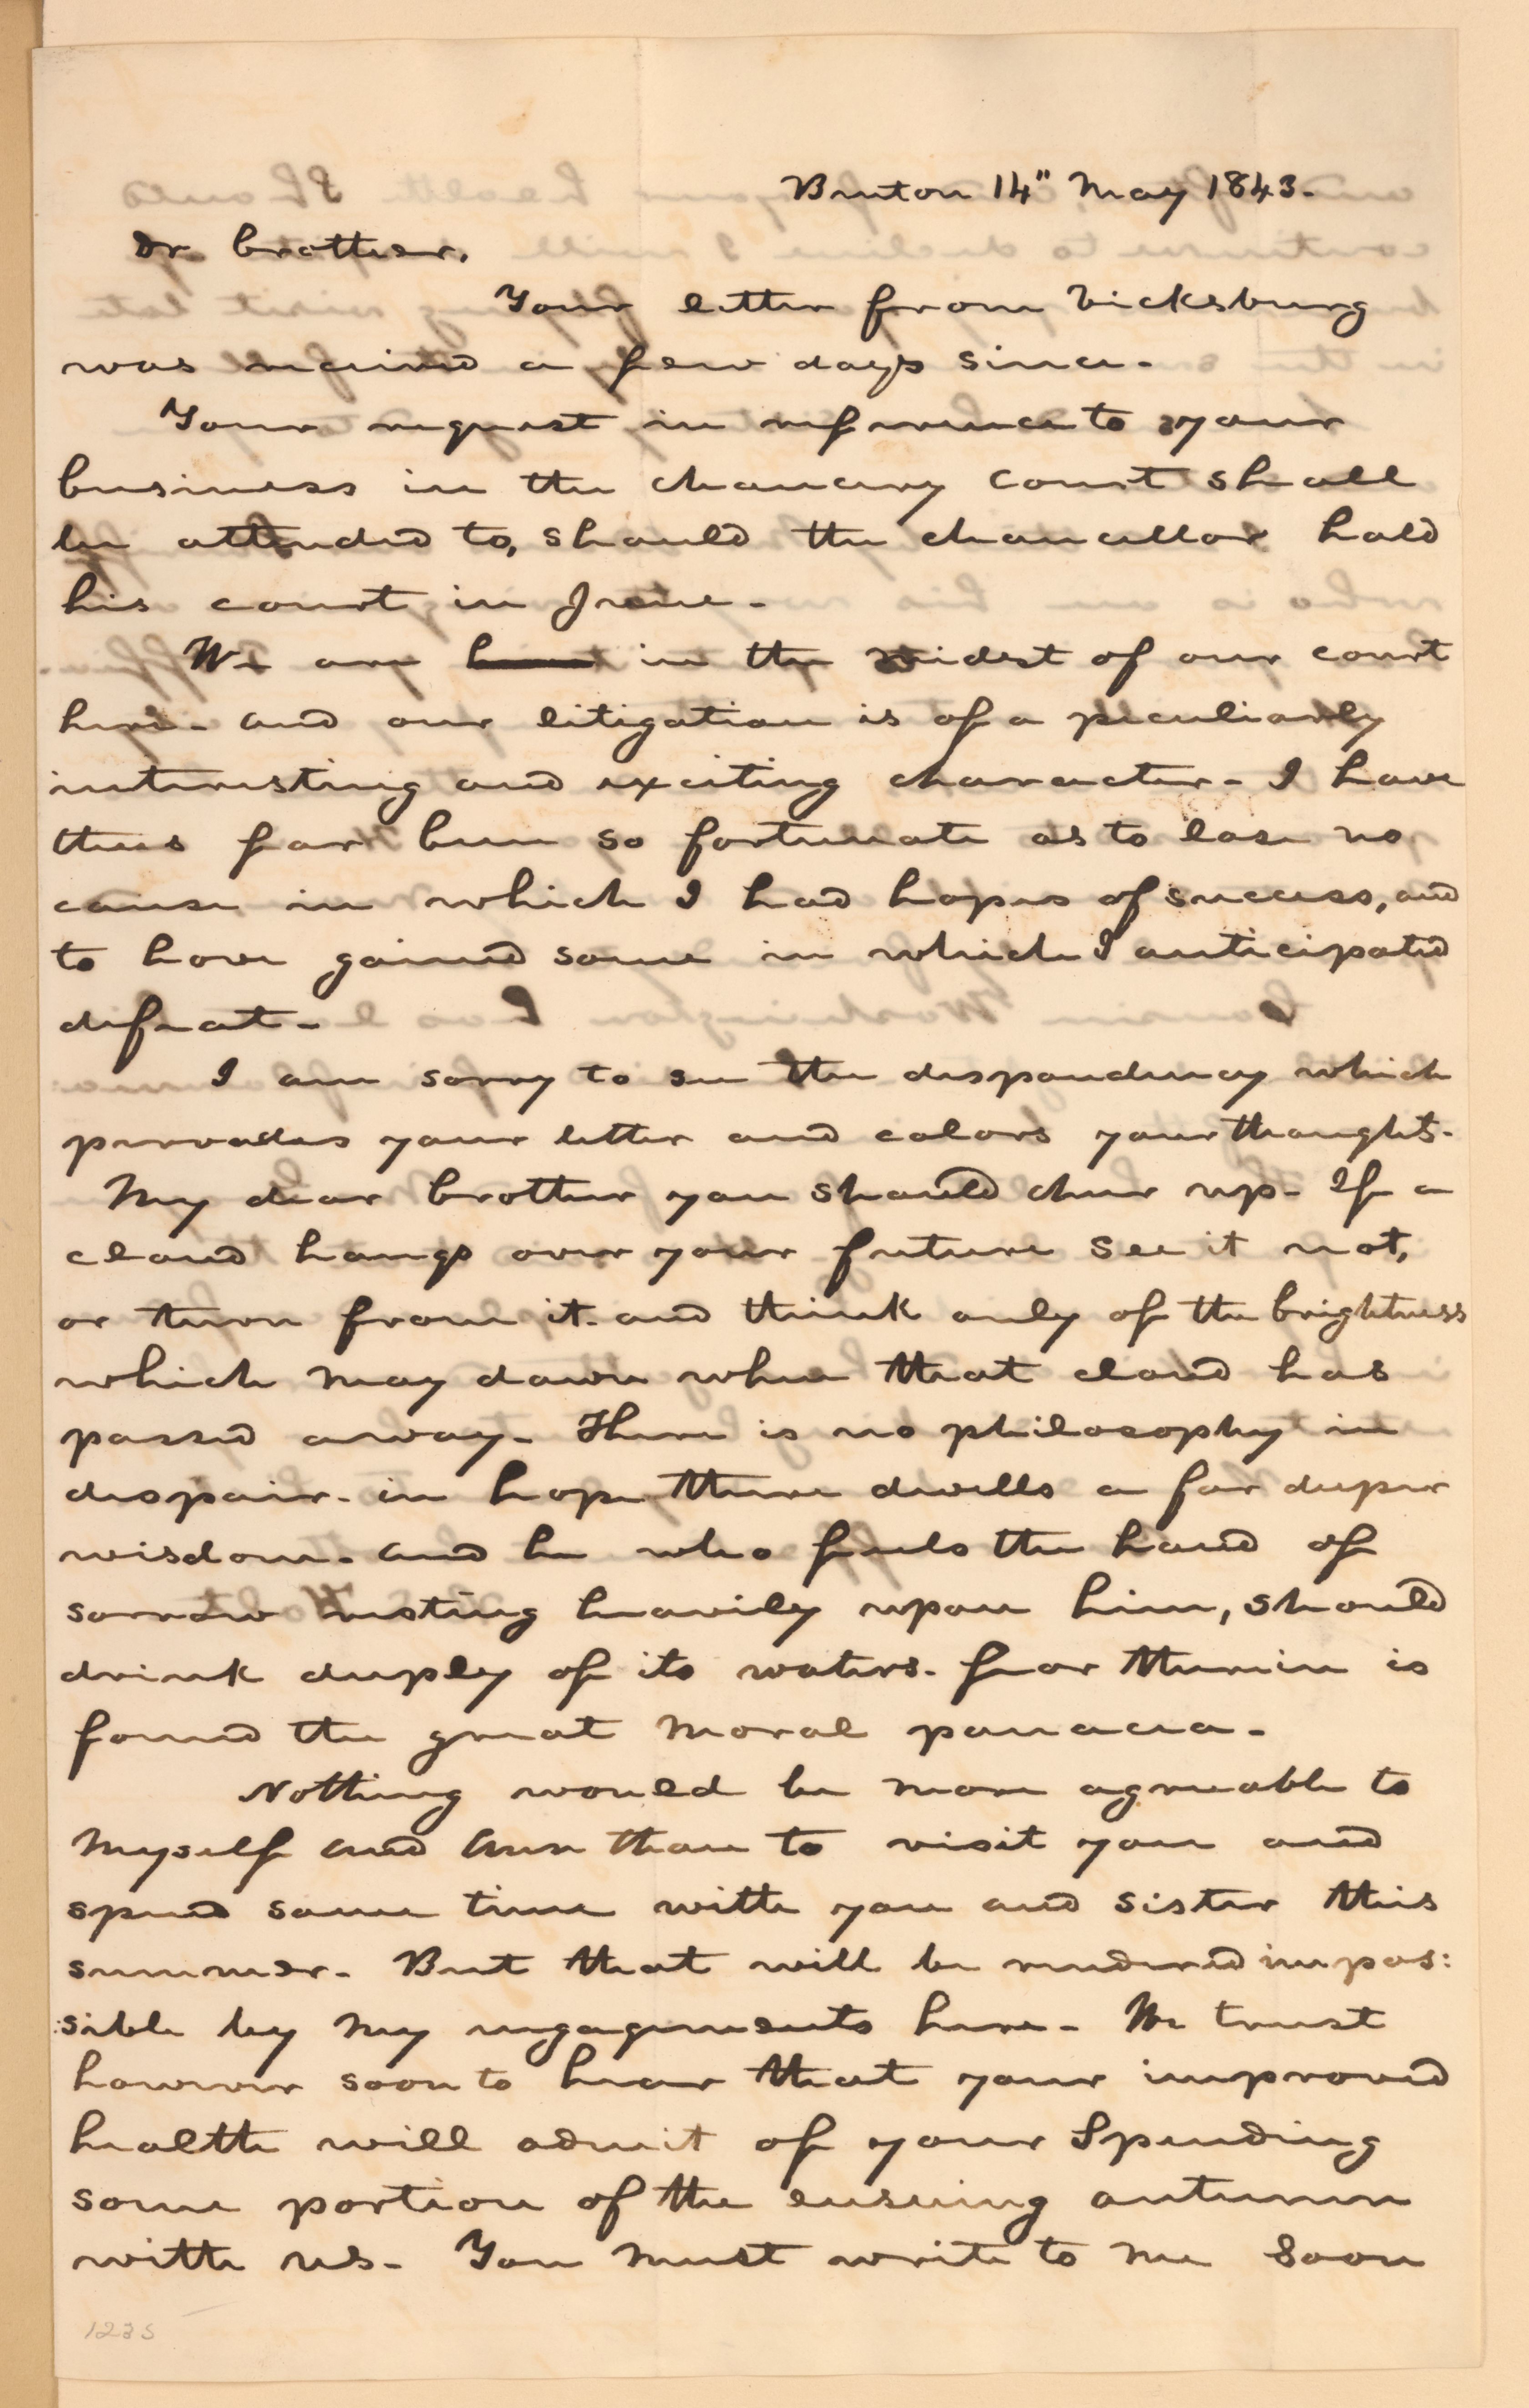 Benton 14" May 1843.
Dr brother,
Your letter from Vicksburg
was received a few days since.
Your request in reference to your
business in the chancery court shall
be attended to, should the chancellor hold
his court in June.
We are in the midst of our court
here. and our litigation is of a peculiarly
interesting and exciting character. I have
thus far been so fortunate as to lose no
cause in which I had hopes of success, and
to have gained some in which I anticipated
defeat.
I am sorry to see the despondency which
pervades your letter and colors your thoughts.
My dear brother you should cheer up. If a
cloud hangs over your future see it not,
or turn from it. and think only of the brightness
which may dawn when that cloud has
passed away. There is no philosophy in
despair. in hope there dwells a far deeper
wisdom. and he who feels the hand of
sorrow resting heavily upon him, should
drink deeply of its waters. for therein is
found the great moral panacea.
Nothing would be more agreeable to
myself and Ann than to visit you and
spend some time with you and sister this
summer. But that will be rendered impos:
:sible by my engagements here. We trust
however soon to hear that your improved
health will admit of your spending
some portion of the ensuing autumn
with us. You must write to me soon
1235